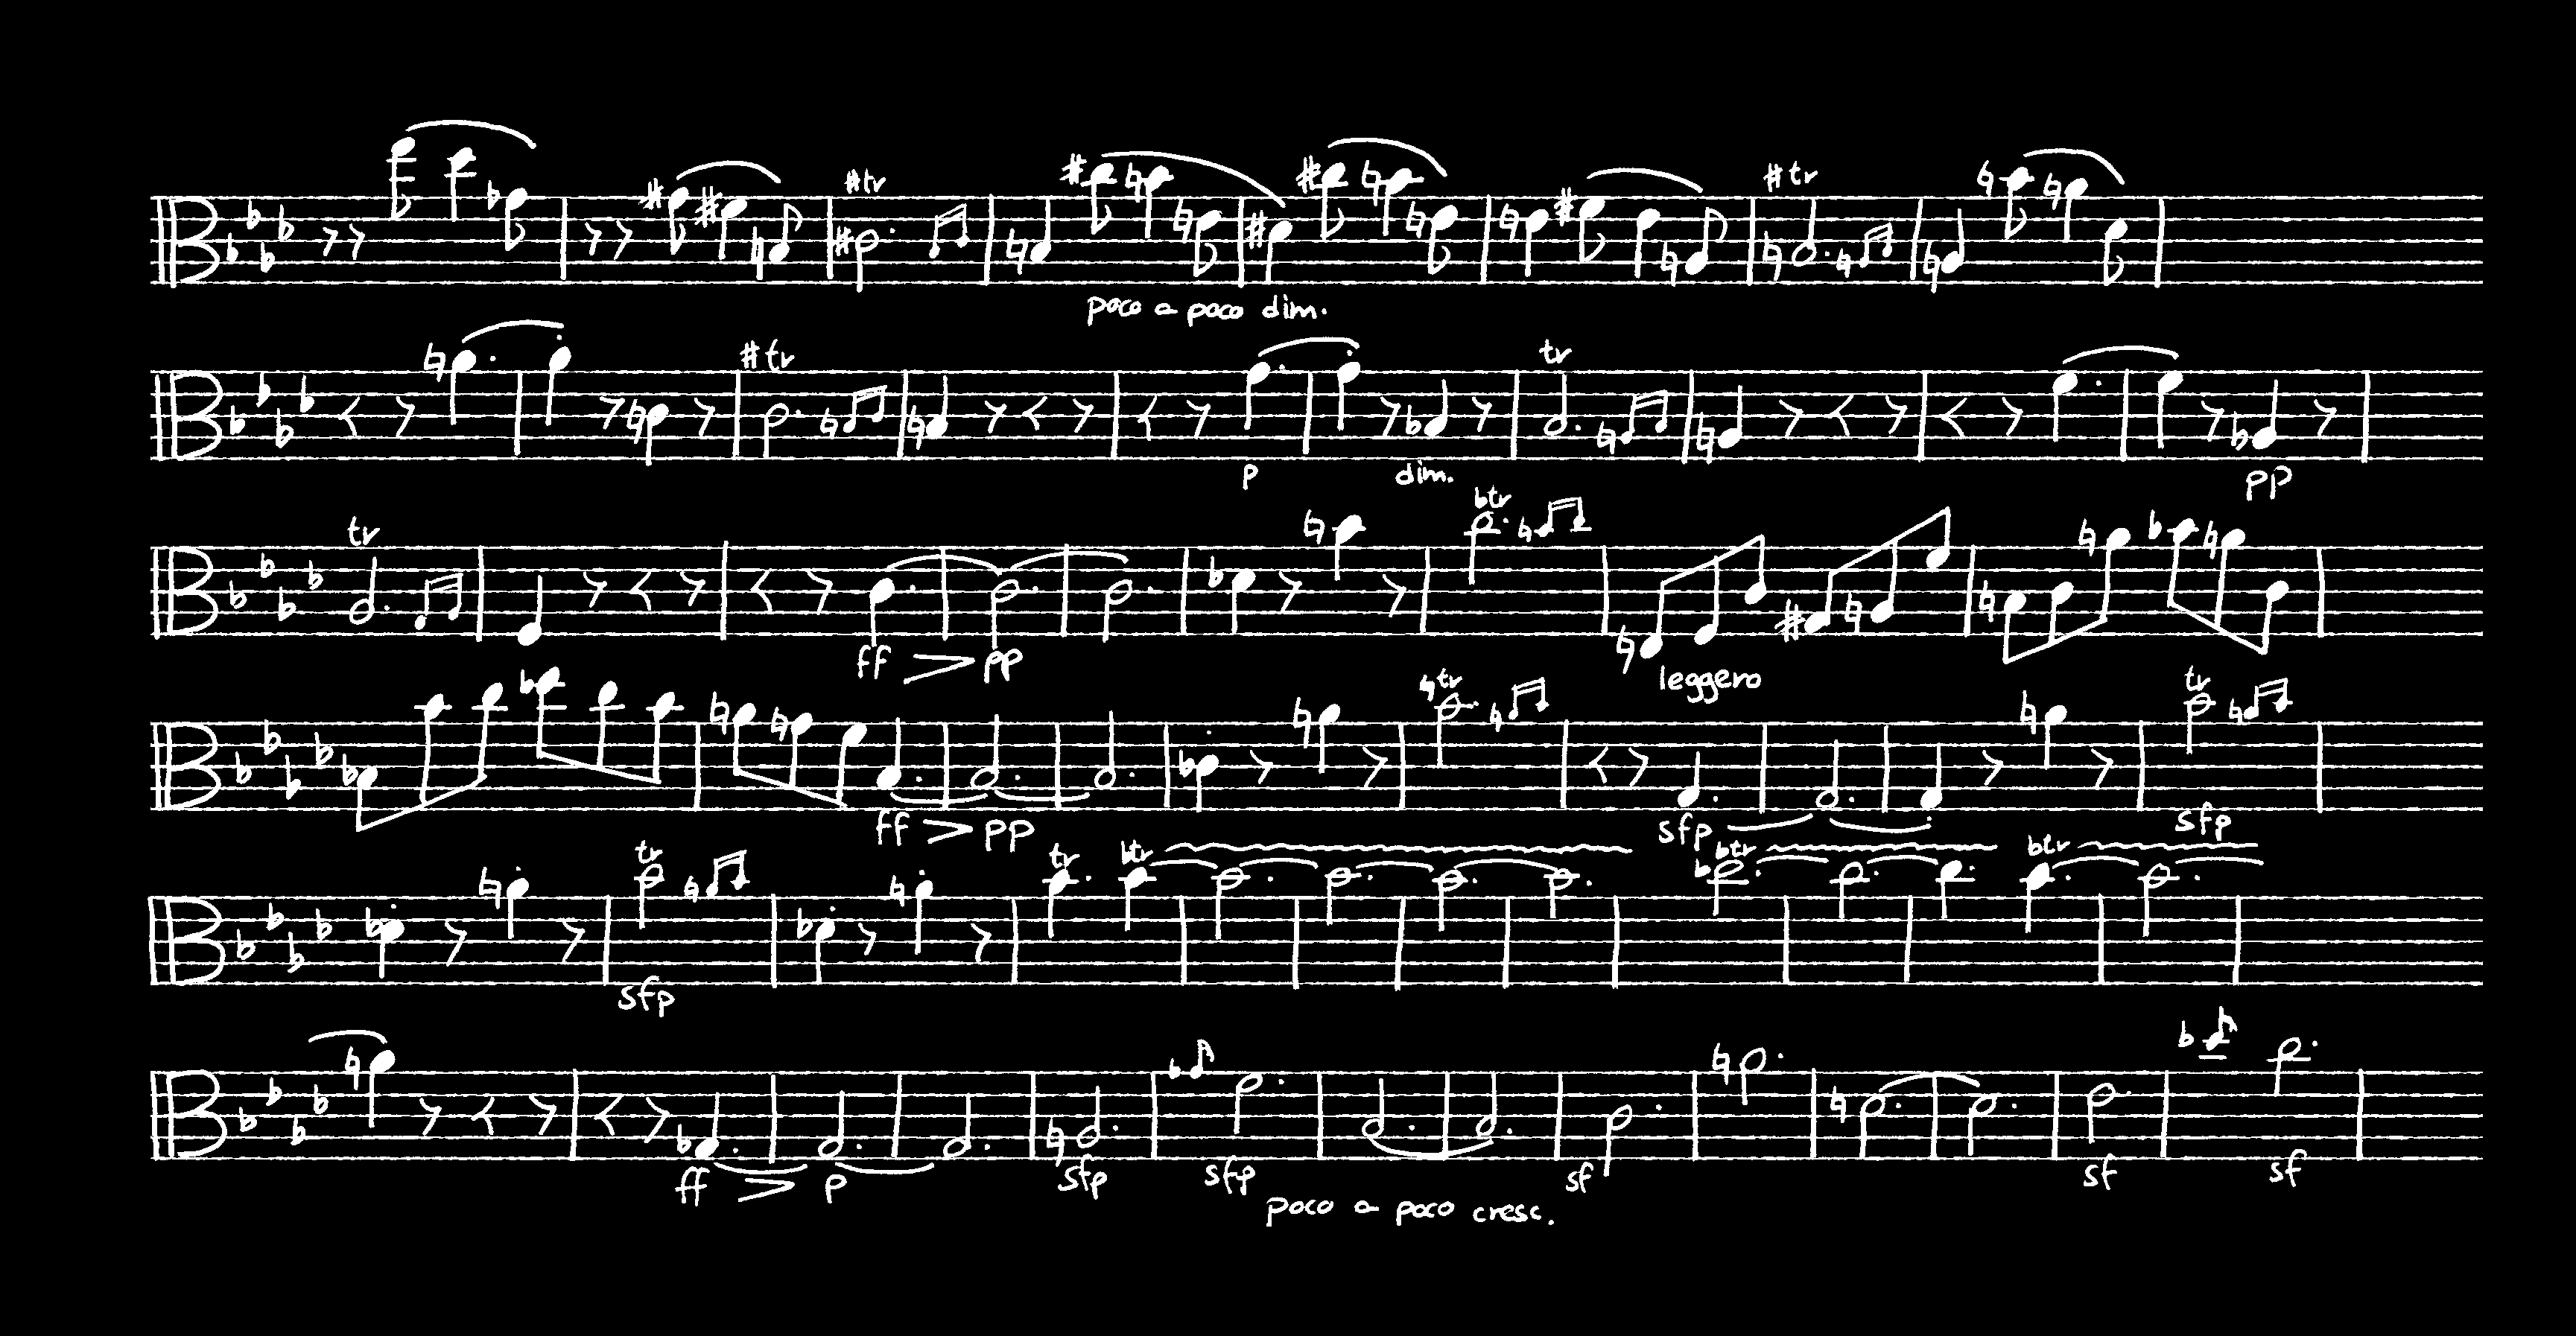 #tr #tr
poco a poco dim.
#tr tr
p dim. pp
tr btr
ff pp leggero
♮tr tr
ff pp sfp sfp
tr tr btr btr btr
sfp
ff p sfp sfp sf sf sf
poco a poco cresc.